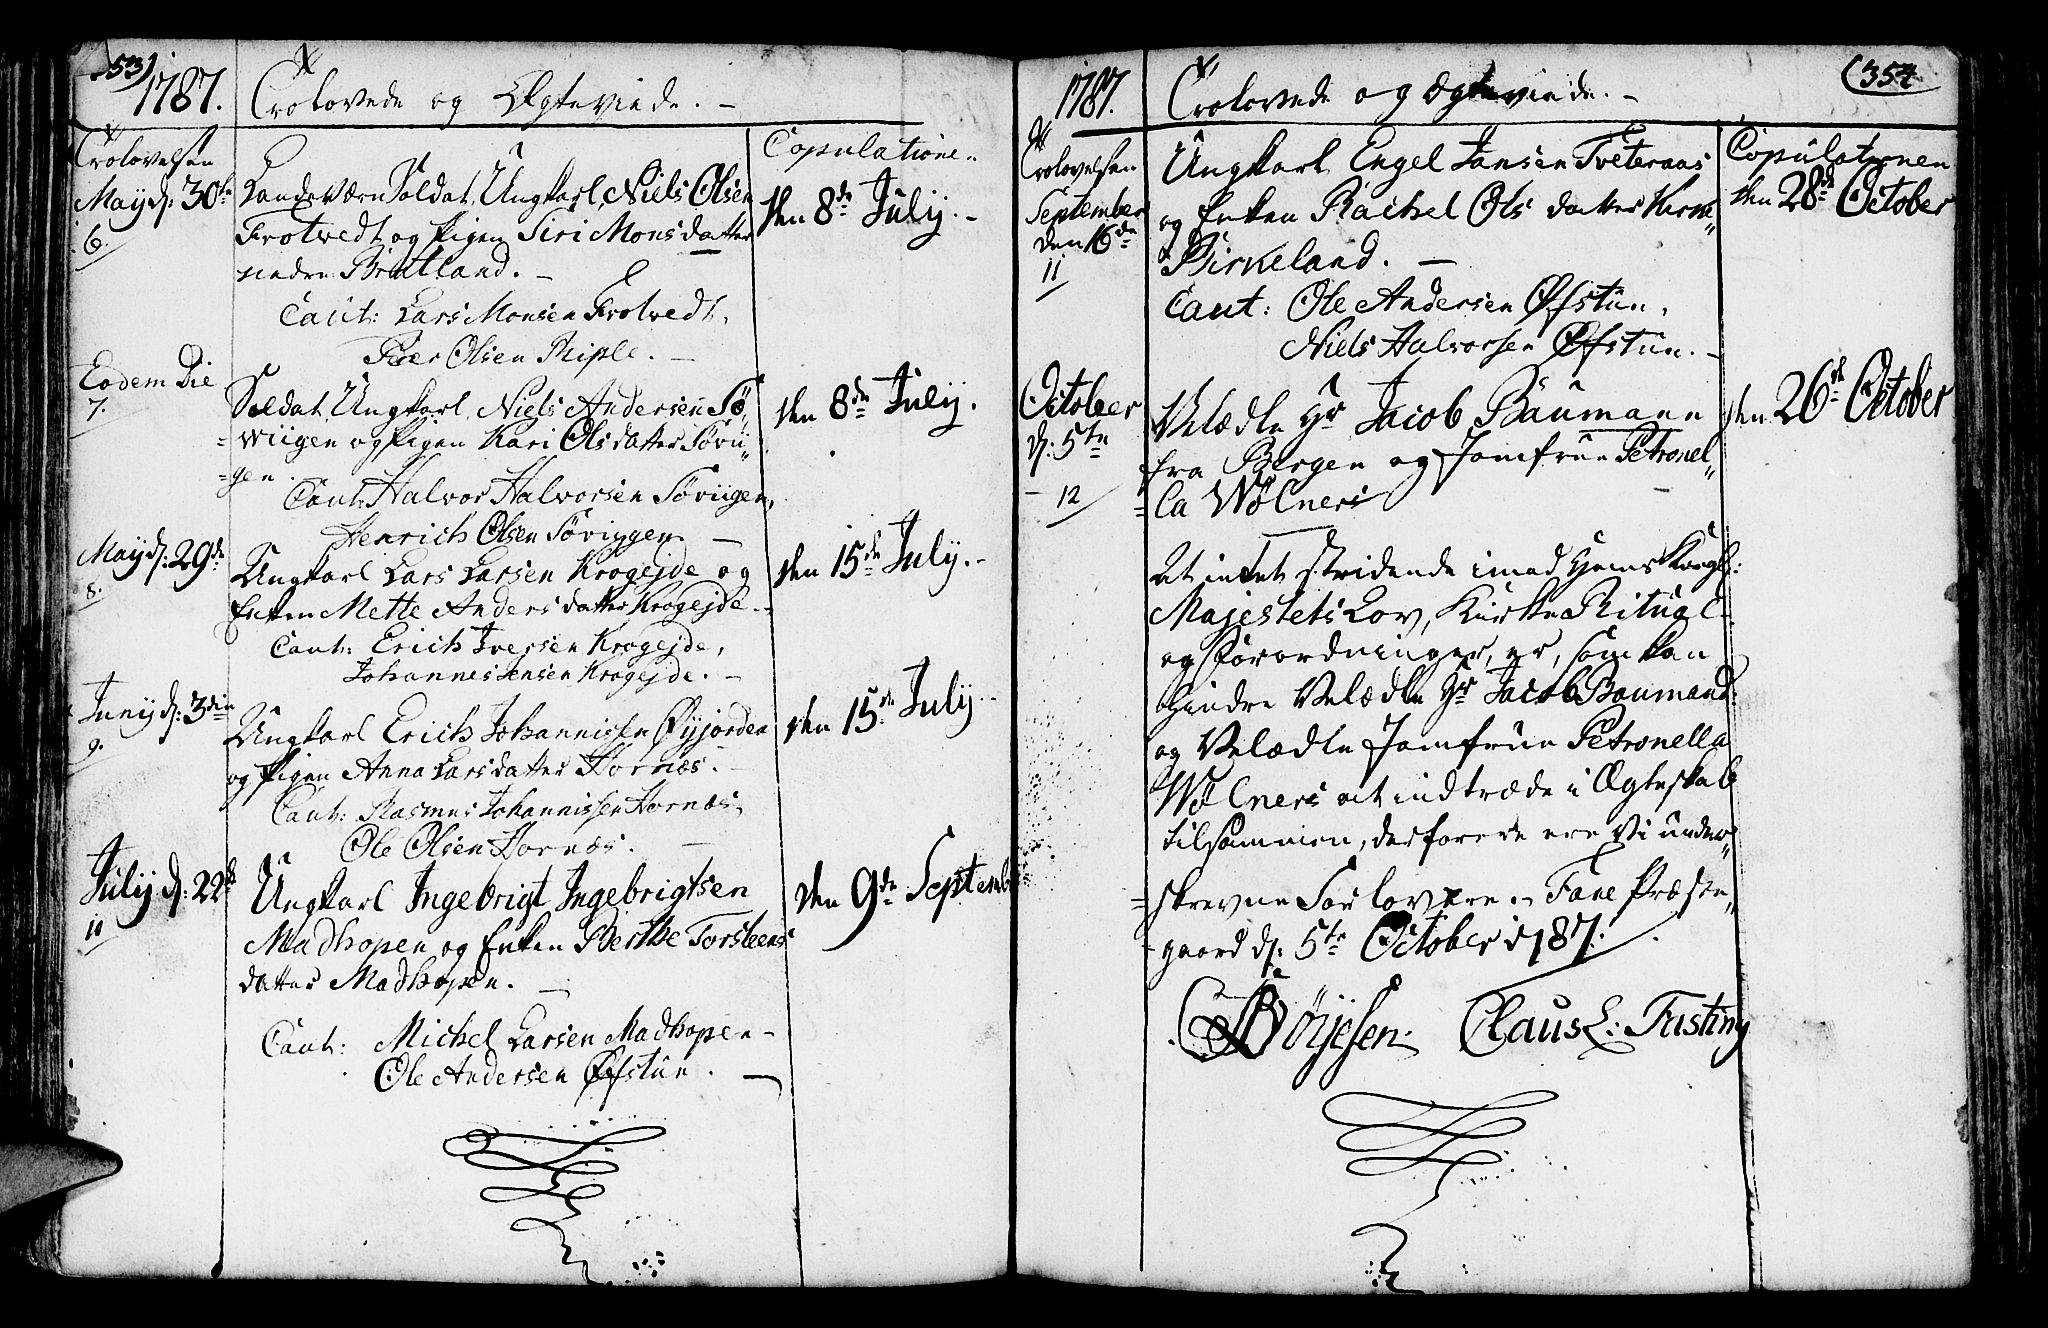 353)
1787. Trolovede og Ægteviede. -
Trolovelsen
Copulationen
May d: 30te
6.
Landeværn Soldat, Ungkarl, Niels Olsen
Frotvedt og Pigen Siri Monsdatter
nedre Bratland. -
Caut: Lars Monsen Frotvedt,
Peer Olsen Riple. -
den 8de July. -
Eodem Die
7.
Soldat Ungkarl Niels Andersen Sø,,
=wiigen og Pigen Kari Olsdatter Søvii,,
=gen.
Caut: Halvor Halvorsen Søviigen,
Henrich Olsen Søviggen. -
den 8de July.
May d: 29de
8.
Ungkarl Lars Larsen Krogejde og
Enken Mette Andersdatter Krogejde. -
Caut: Erich Iversen Krogejde,
Johannes Jensen Krogejde. -
den 15de July. -
Juny d: 3die
9.
Ungkarl Erich Johannissen Øyjorden
og Pigen Anna Larsdatter Hornæs. -
Caut: Rasmus Johannissen Hornæs,
Ole Olsen Hornæs. -
den 15de July. -
July d: 22de
10
Ungkarl Ingebrigt Ingebrigtsen
Madhopen og Enken Berthe Torsteens
datter Madhopen. -
Caut: Michel Larsen Madhopen -
Ole Andersen Øfstun. -
den 9de Septemb
1787. Trolovede og Ægteviede. -
(354
Trolovelsen
Copulationen
September
den 16de
11
Ungkarl Engel Jansen Tveteraas
og Enken Rachel Olsdatter Kirke,,
Birkeland. -
Caut: Ole Andersen Øfstun,
Niels Halvorsen Øfstun. -
den 28de October
October
d: 5te
12
Velædle Hr Jacob Baumann
fra Bergen og Jomfrue Petronel,,
=la Wølners
den 26de October
At intet stridende imod Hans Kongl:
Majestets Lov, Kirke Ritual
og Forordninger, er, som kan
hindre Velædle Hr Jacob Baumand
og Velædle Jomfrue Petronella
Wølners at indtræde i Ægteskab
tilsammen, derfore ere Vi under,,
=skrevne Forlovere. Fane Præste,,
-gaard d: 5te October 1787.
Børjesen. Claus L: Fasting